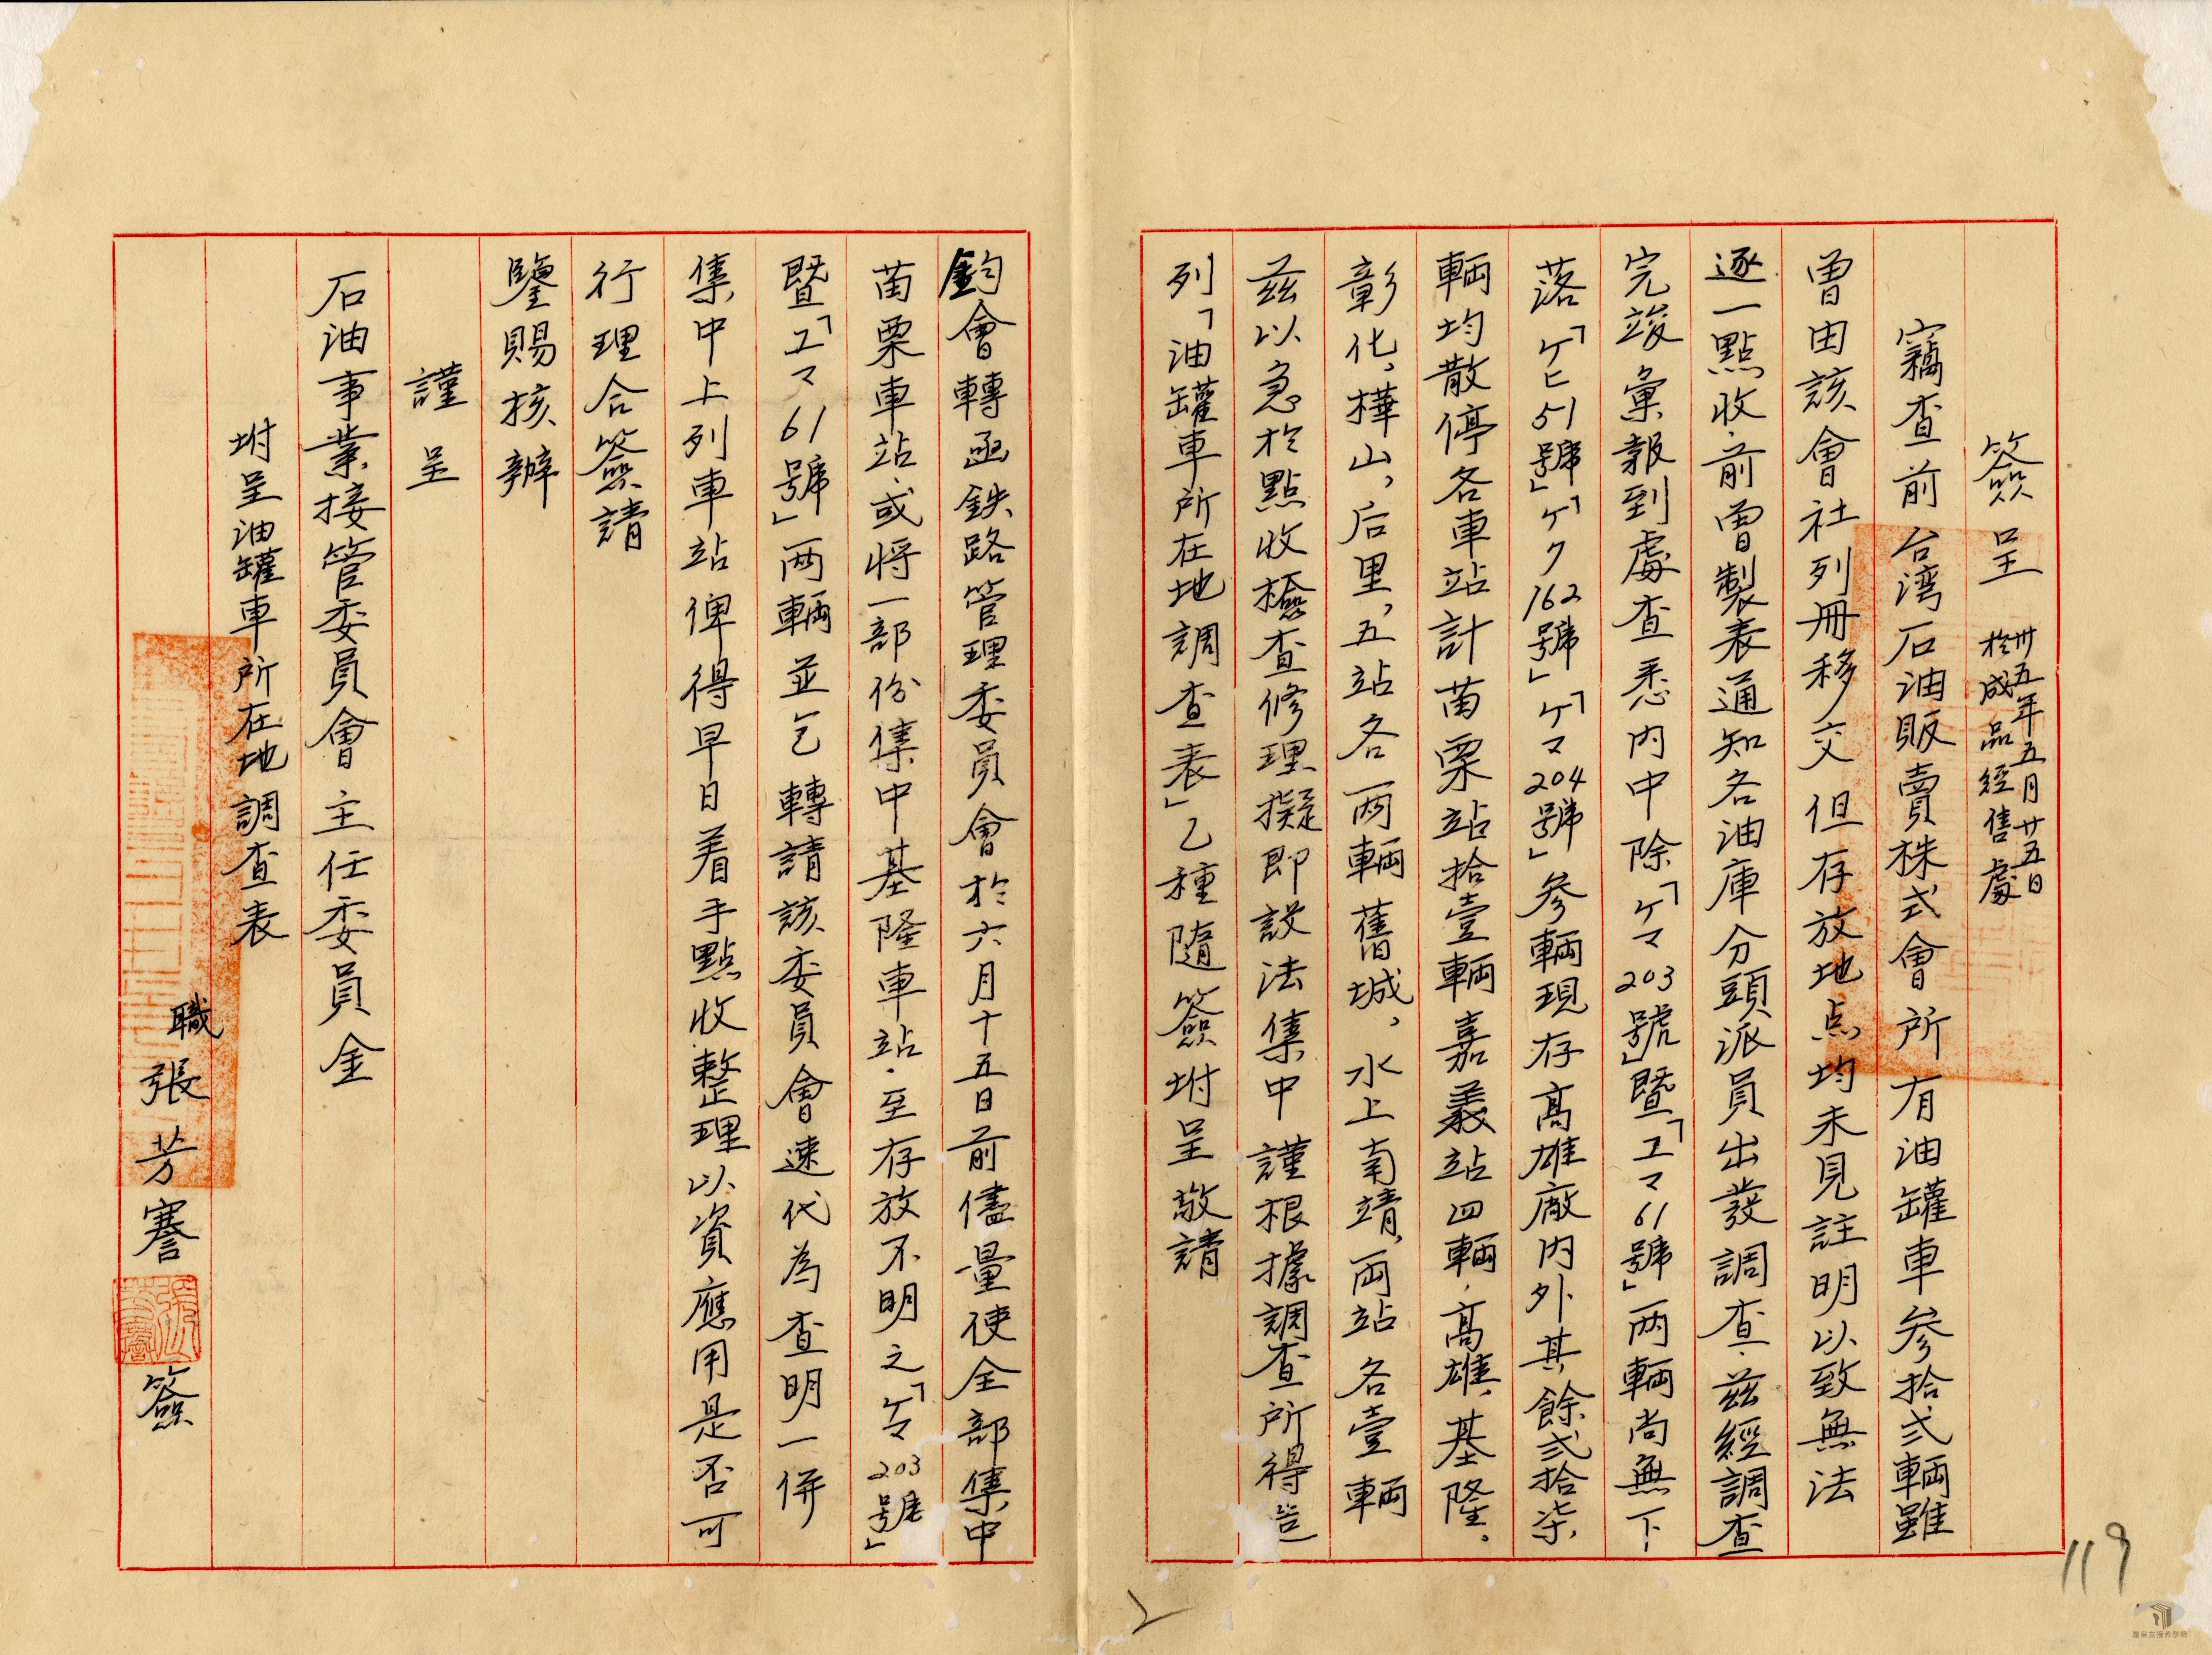 簽呈 卅五年五月廿五日
於成品經售處
竊查前台湾石油販賣株式會所有油罐車參拾弍輛雖
曾由該會社列冊移交但存放地点均未見註明以致無法
逐一點收前曾製表通知各油庫分頭派員出發調查.兹經調查
完竣彙報到處查悉內中除「ケマ203號」暨「エマ61號」両輛尚無下
落「ケヒ51號」「ケク162號」「ケマ204號」參輛現存高雄廠內外其餘弍拾柒
輛均散停各車站計苗栗站拾壹輛嘉義站四輛.高雄.基隆.
彰化,樺山,后里,五站各両輛舊城,水上南靖,両站各壹輛
兹以急於點收檢查修理擬即設法集中謹根據調查所得造
列「油罐車所在地調查表」乙種隨簽坿呈敬請
鈞會轉函鉄路管理委員會於六月十五日前儘量使全部集中
苗栗車站.或将一部份集中基隆車站.至存放不明之「ケマ203號」
暨「エマ61號」両輛並乞轉請該委員會速代為查明一併
集中上列車站俾得早日着手點收整理以資應用是否可
行理合簽請
鑒賜核辦
謹呈
石油事業接管委員會主任委員金
坿呈油罐車所在地調查表
職張芳謇簽
119